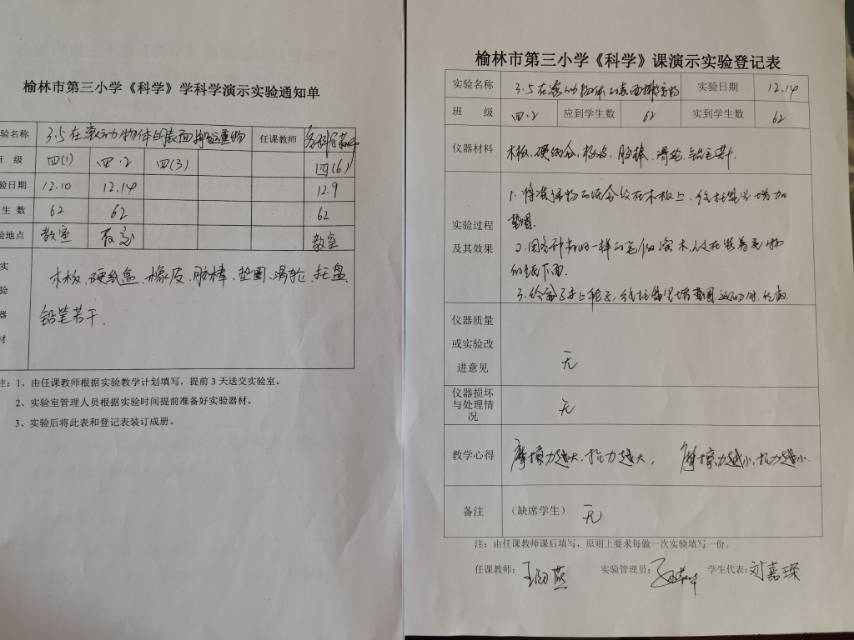 榆林市第三小学《科学》学科学演示实验通知单
验名称 3.5在滚动物体的表面 任课教师
年 级 四(1) 四·2 四(3) 四(6)
验日期 12.10 12.14 12.9
生 数 62 62 62
验地点 教室 教室 教室
实
验
器
材
木板、硬纸盒、橡皮、胶棒、垫圈、滑轮、托盘、
铅笔若干.
注：1、由任课教师根据实验教学计划填写，提前 3 天送交实验室。
2、实验室管理人员根据实验时间提前准备好实验器材。
3、实验后将此表和登记表装订成册。
榆林市第三小学《科学》课演示实验登记表
实验名称 3.5在 物体的表面 实验日期 12.14
班 级 四·2 应到学生数 62 实到学生数 62
仪器材料 木板、硬纸盒、橡皮、胶棒、滑轮、铅笔若干.
实验过程
及其效果
1. 将准 物 纸盒放在木板上, 往托盘里增加
垫圈.
2. 用各种
的 下面.
3. 给盒子 上轮子, 往托盘里增垫圈
仪器质量
或实验改
进意见
无
仪器损坏
与处理情
况
无
教学心得 摩擦力越大, 拉力越大, 摩擦力越小, 拉力越小.
备注 （缺席学生） 无
注：由任课教师课后填写，原则上要求每做一次实验填写一份。
任课教师： 实验管理员： 学生代表: 刘嘉琛